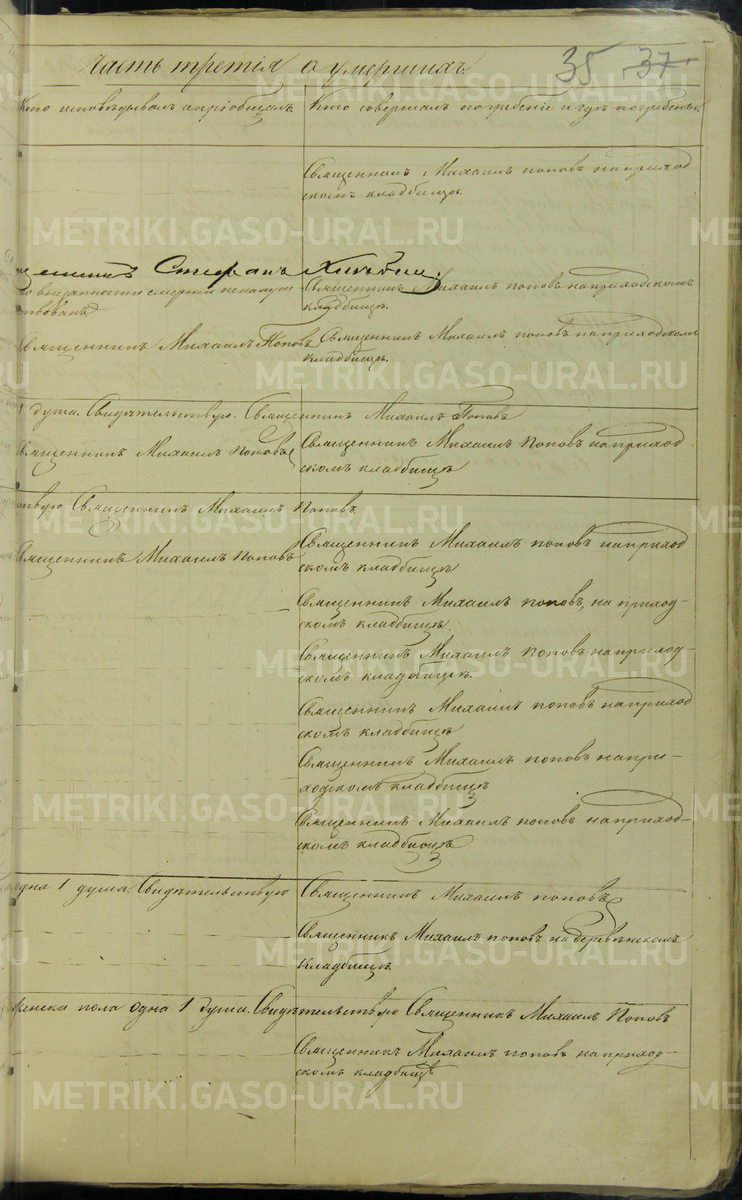 Часть третія о умершихъ.
35 37
Кто исповѣдывалъ и пріобщалъ.
Кто совершалъ погребеніе и гдѣ погребены.
Священникъ Михаилъ Поповъ на приход
скомъ кладбищѣ.
Стефанъ
по внезапности смерти ненапут
ствованъ
Священникъ Михаилъ Поповъ на приходскомъ
кладбищѣ.
Священникъ Михаилъ Поповъ
Священникъ Михаилъ Поповъ на приходскомъ
кладбищѣ.
1 душа. Свидѣтельствую. Священникъ Михаилъ Поповъ
Священникъ Михаилъ Поповъ
Священникъ Михаилъ Поповъ на приход
скомъ кладбищѣ
ствую Священникъ Михаилъ Поповъ
Священникъ Михаилъ Поповъ
Священникъ Михаилъ Поповъ на приход
скомъ кладбищѣ
Священникъ Михаилъ Поповъ, на приход-
скомъ кладбищѣ.
Священникъ Михаилъ Поповъ на приход-
скомъ кладбищѣ.
Священникъ Михаилъ Поповъ на приход
скомъ кладбищѣ
Священникъ Михаилъ Поповъ на при-
ходскомъ кладбищѣ
Священникъ Михаилъ Поповъ на приход-
скомъ кладбищѣ
одна 1 душа. Свидѣтельствую Священникъ Михаилъ Поповъ
Священникъ Михаилъ Поповъ на деревенскомъ
кладбищѣ
женска пола одна 1 душа. Свидѣтельствую Священникъ Михаилъ Поповъ
Священникъ Михаилъ Поповъ на приход-
скомъ кладбищѣ
METRIKI.GASO-URAL.RU